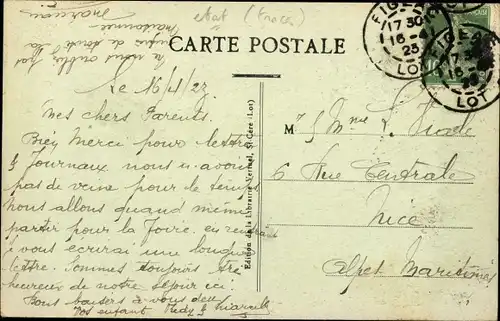 état (traces)
CARTE POSTALE
Le 16/4/23
Mes chers Parents.
Bien Merci pour lettre
& Journaux nous n'avons
pas de veine pour le temps
nous allons quand même
partir pour la Foire, en rentrant
je vous écrirai une longue
lettre. Sommes toujours très
heureux de notre séjour ici
Bons baisers à vous deux
Vos enfants
M & Mme L.
6 Rue Centrale
Nice
Alpes Maritimes
Edition de la Librairie Vertuel, St-Céré (Lot)
FIGEAC
17 30
16 -4
23
LOT
FIGEAC
17
16
LOT